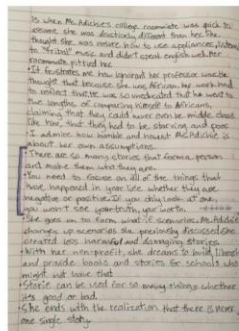 is when Mc.Adichies college roommate was quick to
assume she was drastically different than her. She
thought she was unsure how to use appliances, listens
to "tribal" music and didn't speak english well. Her
roommate pittied her.
• It frustrates me how ignorant her professor was. He
thought that because she was African, her work had
to reflect that. He was so uneducated that he went to
the lengths of comparing himself to Africans,
claiming that they could never even be middle class
like him, but they had to be starving and poor
• I admire how humble and honest Mc.Adichie is
about her own assumptions.
• There are so many stories that form a person
and make them who they are.
• You need to focus on all of the things that
have happened in your life whether they are
negative or positive. If you only look at one,
you won't see your truth, your worth.
• She goes on to form "what if" scenarios. Mc.Adichie
changes up scenarios she previously discussed. She
created less harmful and damaging stories
• With her nonprofit, she dreams to build libraries
and provide books and stories for schools who
might not have that
• Stories can be used for so many things whether
it's good or bad.
• She ends with the realization that there is never
one single story.